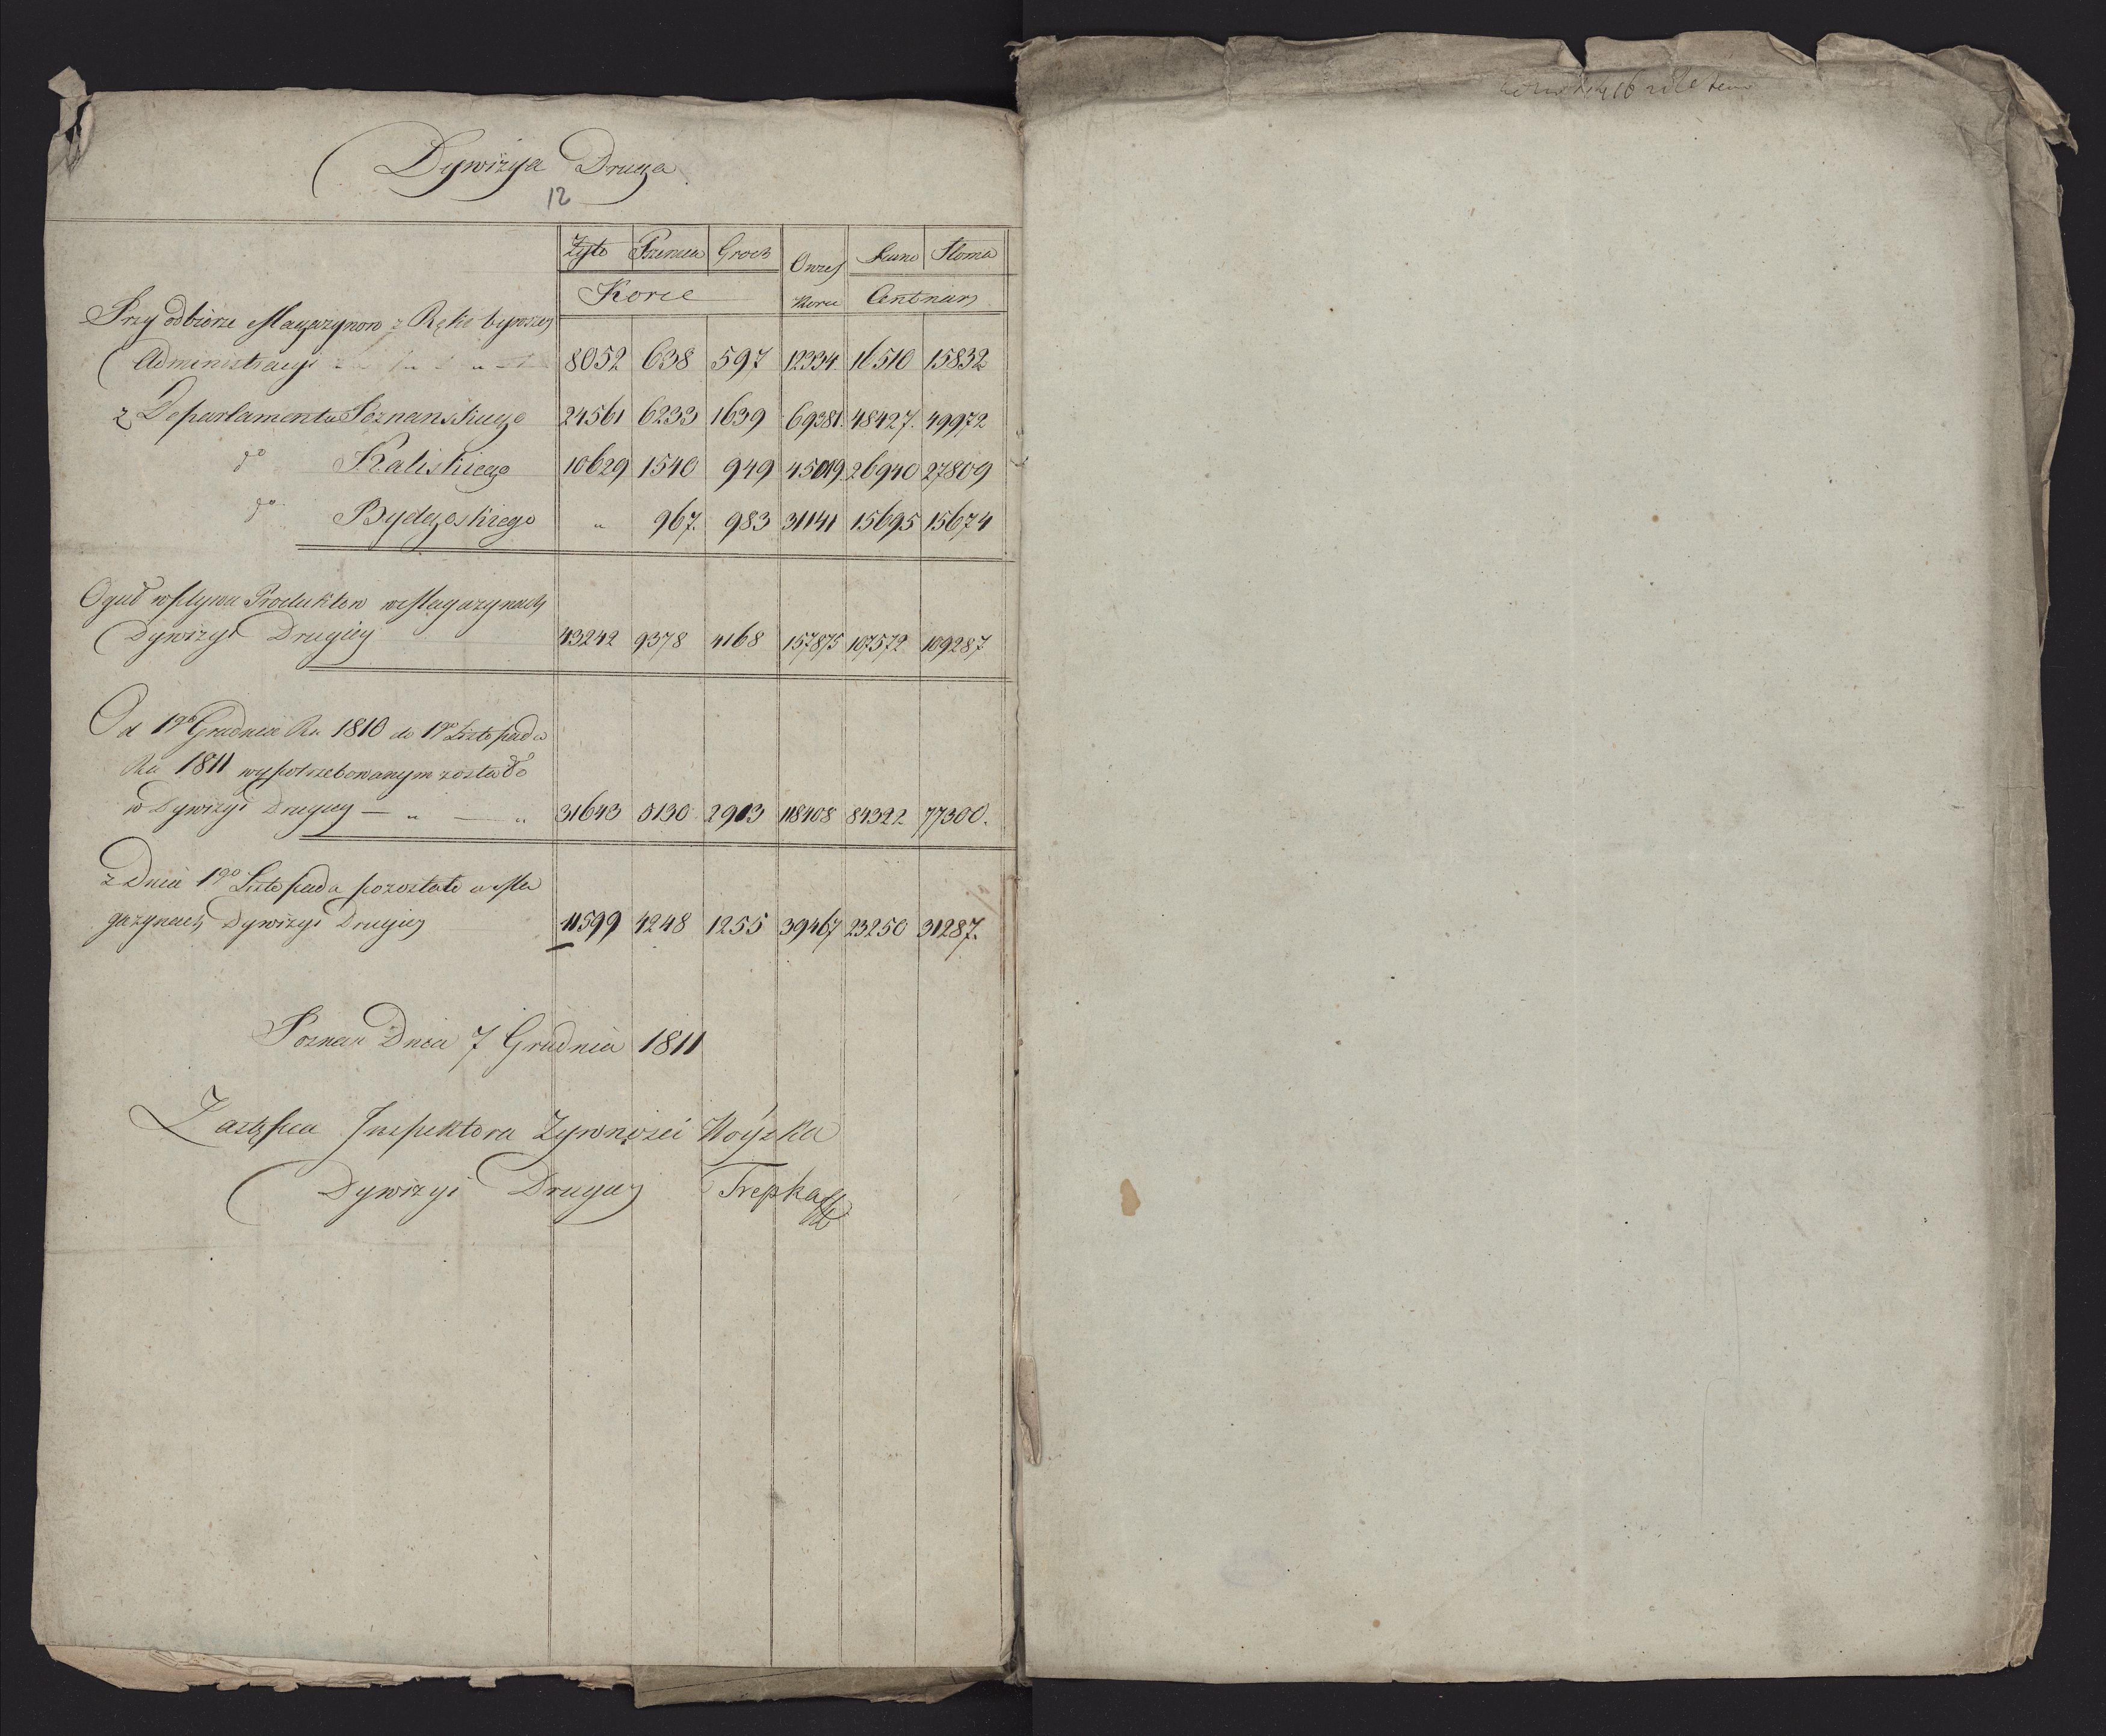 Dywizya Druga
12
Żyto Pszenica Groch Owies Siano Słoma
Korce Korce Centnary
Przy odbiorze Magazynow z Ręki bywszey
Administracyi 8052 638 597 12334. 16510 15832
z Departamentu Poznanskiego 24561 6233 1639 69381. 48427. 49972
do Kaliskiego 10629 1540 949 45019. 26940 27809
do Bydgoskiego " 967. 983 31141 15695 15674
Oguł wpływu Produktow w Magazynach
Dywizyi Drugiey 43242 9378 4168 157875 107572 109287
Od 1go Grudnia Ru 1810 do 1go Listopada
Ru 1811 wypotrzebowanym zostało
w Dywizyi Drugiey — " — " 31643 5130 2913 118408 84322 77300.
z Dnia 1go Listopada pozostało w Ma
gazynach Dywizyi Drugiey 11599 4248 1255 39467 23250 31287.
Poznan Dnia 7 Grudnia 1811
Zastępca Inspektora Zywnosci Woyska
Dywizyi Drugiey Trepka